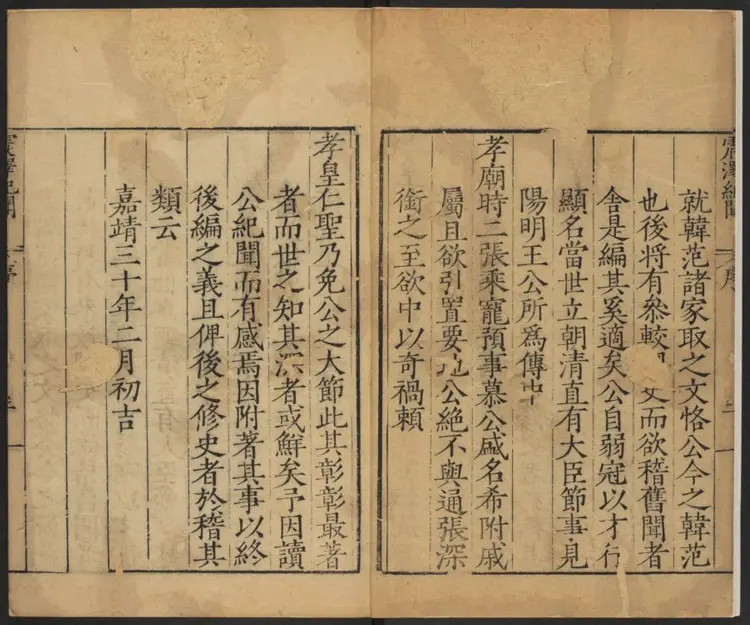 震澤紀聞
序
就韓范諸家取之文恪公今之韓范
也後将有叅較史而欲稽舊聞者
舍是編其奚適矣公自弱冠以才行
顯名當世立朝清直有大臣節事見
陽明王公所爲傳中
孝廟時二張乘寵預事慕公盛名希附戚
屬且欲引置要地公絶不與通張深
銜之至欲中以奇禍頼
孝皇仁聖乃免公之大節此其彰彰最著
者而世之知其深者或鮮矣予因讀
公紀聞而有感焉因附著其事以終
後編之義且俾後之修史者於稽其
類云
嘉靖三十年二月初吉
震澤紀聞
序